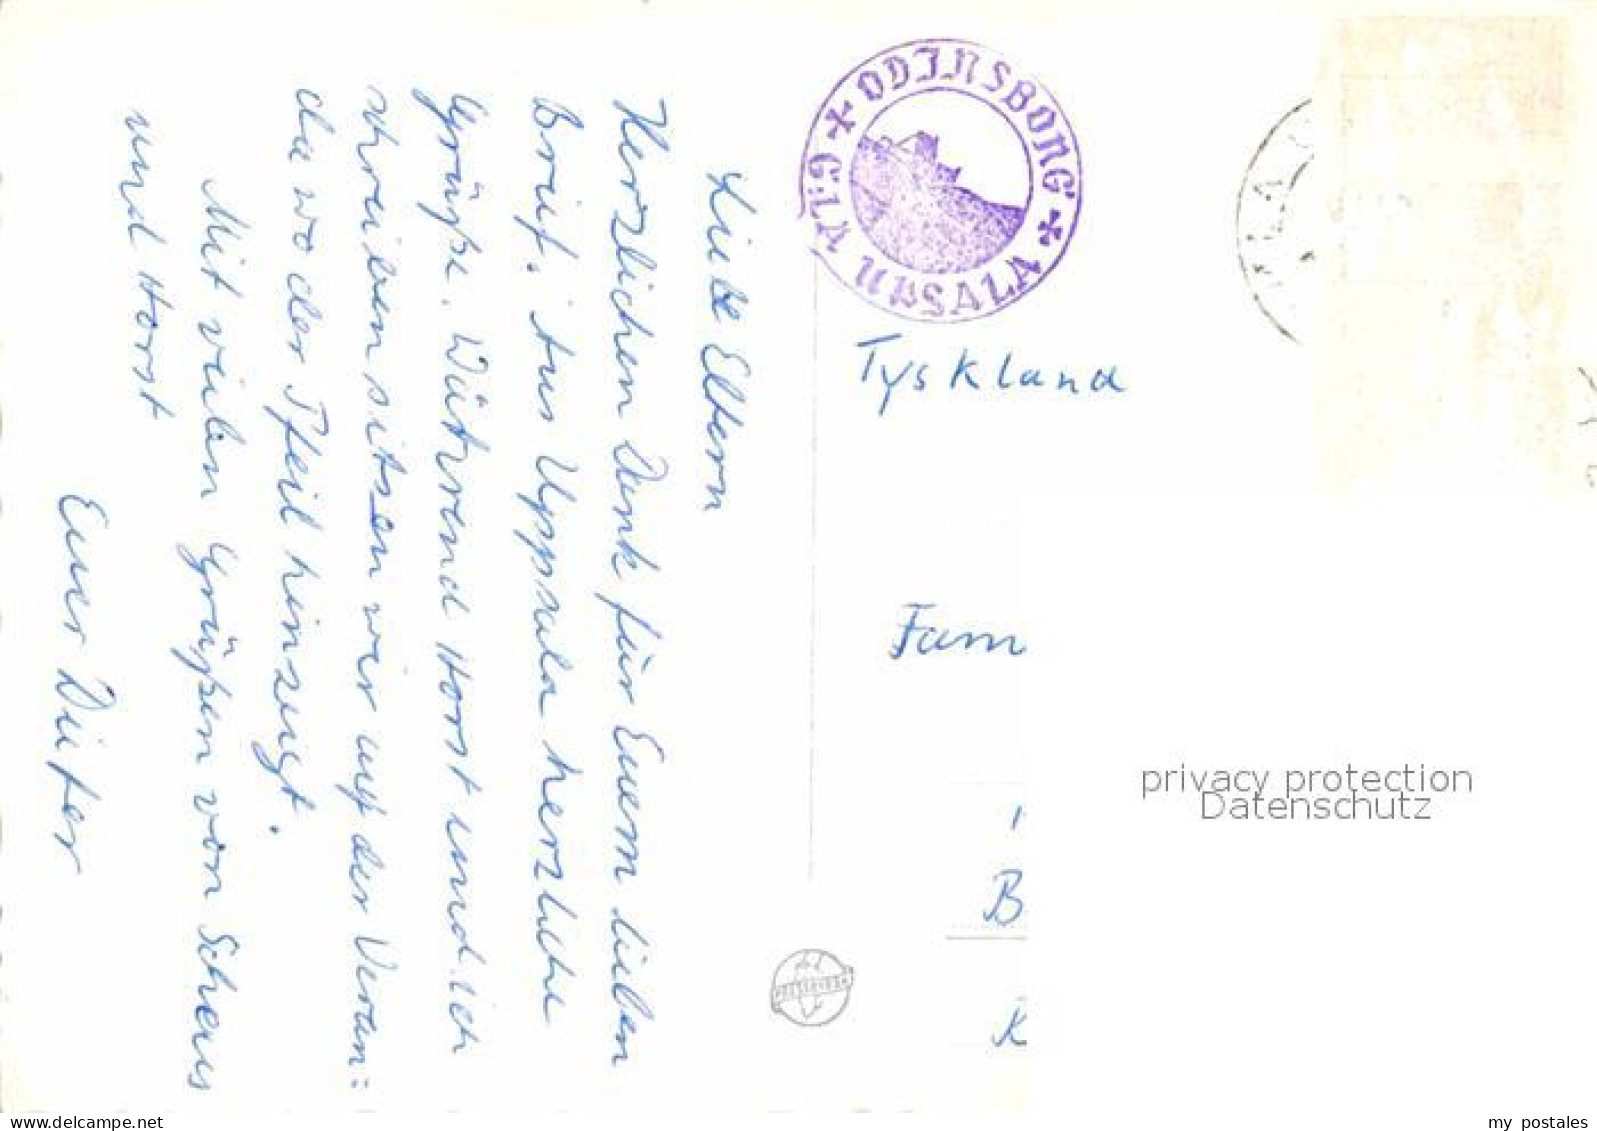 Liebe Eltern
Herzlichen Dank für Euern lieben
Brief. Aus Uppsala herzliche
Grüße. Während Horst und ich
schreiben sitzen wir auf der Veran=
da wo der Pfeil hinzeigt.
Mit vielen Grüßen von Schaus
und Horst
Euer Dieter
✠ ODINSBORG ✠
G:LA UPSALA
Tyskland
Fam
B
K
privacy protection
Datenschutz
delcampe.net
my_postales